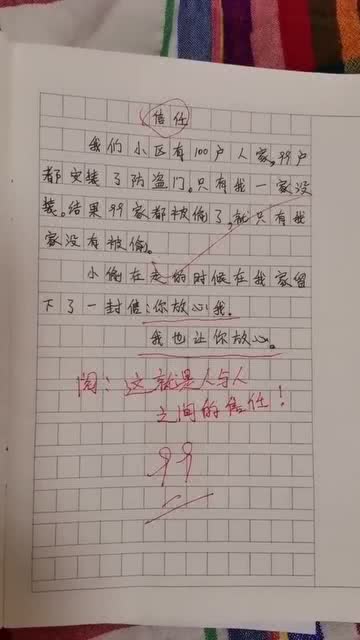 信任
我们小区有100户人家,99户
都安装了防盗门。只有我一家没
装。结果99家都被偷了,就只有我
家没有被偷。
小偷在走的时候在我家留
下了一封信:你放心我。
我也让你放心。
阅:这就是人与人
之间的信任!
99